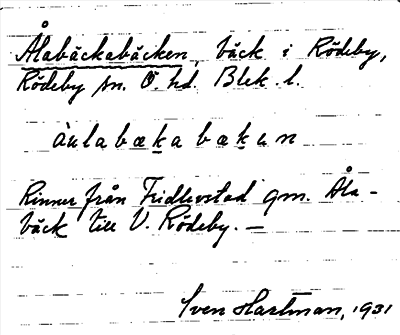 Ålabäckabäcken, bäck i Rödeby,
Rödeby sn. Ö. hd. Blek. l.
àulabækabæken
Rinner från Fridlevstad gm. Åla-
bäck till V. Rödeby. —
Sven Hartman, 1931